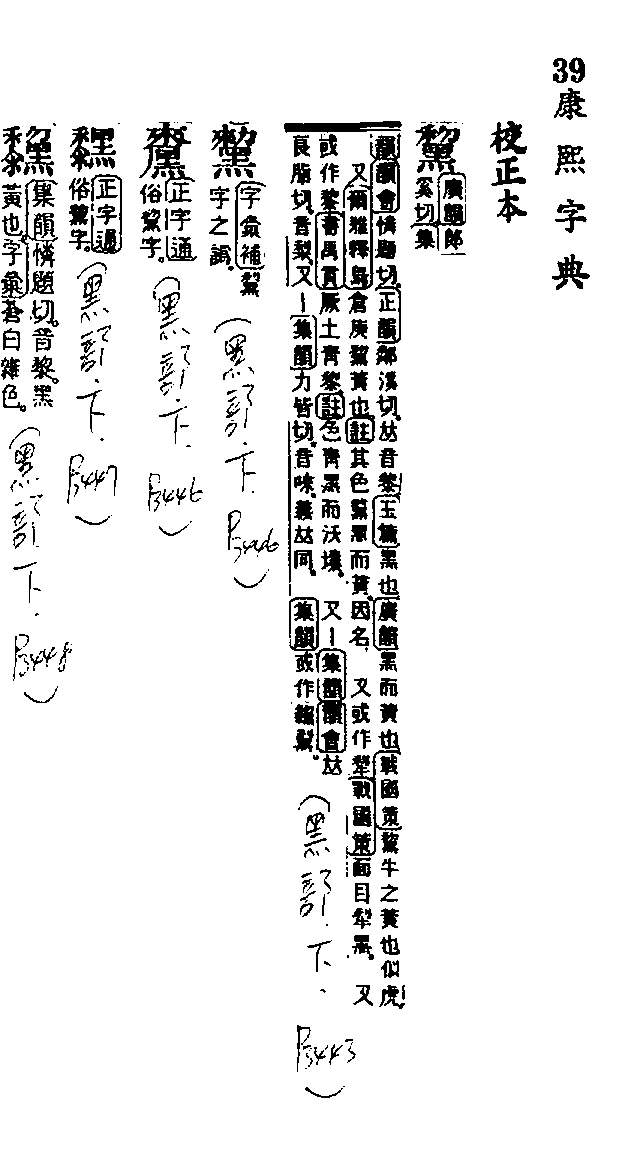 39 康熙字典
校正本
黧 廣韻郎
奚切集
韻韻會憐題切正韻鄰溪切𠀤音黎玉篇黑也廣韻黑而黃也戰國策黧牛之黃也似虎
又爾雅釋鳥倉庚黧黃也註其色黧黑而黃因名 又或作犂戰國策面目犂黑 又
或作黎書禹貢厥土青黎註色青黑而沃壤 又〡集韻韻會𠀤
良脂切音梨又〡集韻力皆切音唻義𠀤同 集韻或作
(黑部.下.P3443)
字彙補黧
字之譌
(黑部.下.P3446)
正字通
俗黧字
(黑部.下.P3446)
正字通
俗黧字
(黑部.下.P3447)
集韻憐題切音黎黑
黃也字彙蒼白雜色
(黑部.下.P3448)